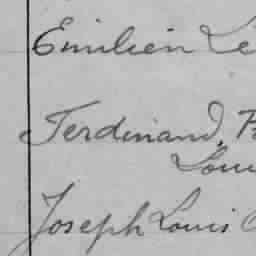 Emilien
Ferdinand,
Joseph Louis